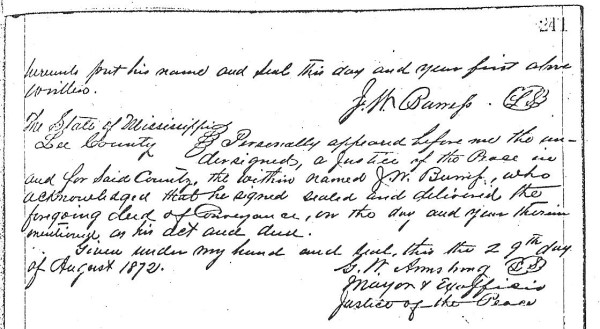 241
hereunto put his name and seal this day and year first above
written.
J. W. Burress. LS
The State of Mississippi
Lee County Personally appeared before me the un-
dersigned, a Justice of the Peace in
and for said County, the within named J. W. Burress, who
acknowledged that he signed sealed and delivered the
forgoing deed of Conveyance, on the day and year therein
mentioned as his act and deed.
Given under my hand and seal, this the 29th day
of August 1872.
G. W. Armstrong LS
Mayor & Exofficio
Justice of the Peace